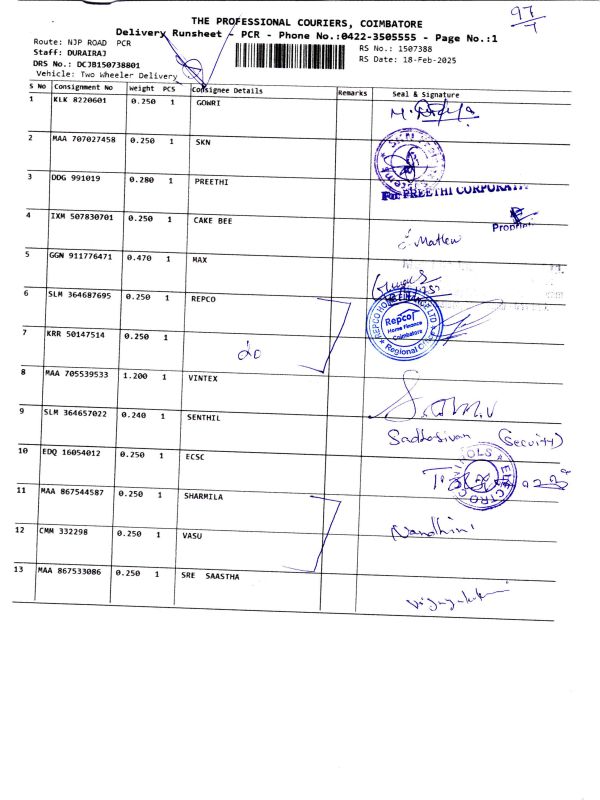 97/7
THE PROFESSIONAL COURIERS, COIMBATORE
Delivery Runsheet - PCR - Phone No.:0422-3505555 - Page No.:1
Route: NJP ROAD PCR
RS No.: 1507388
Staff: DURAIRAJ
RS Date: 18-Feb-2025
DRS No.: DCJB150738801
Vehicle: Two Wheeler Delivery
S No Consignment No Weight PCS Consignee Details Remarks Seal & Signature
1 KLK 8220601 0.250 1 GOWRI
2 MAA 707027458 0.250 1 SKN
3 DDG 991019 0.280 1 PREETHI
For PREETHI CORPORATI
4 IXM 507830701 0.250 1 CAKE BEE
Propri
Mathew
5 GGN 911776471 0.470 1 MAX
6 SLM 364687695 0.250 1 REPCO
REPCO HOME FINANCE LTD
Repco
Home Finance
Coimbatore
Regional Office
7 KRR 50147514 0.250 1 do
8 MAA 705539533 1.200 1 VINTEX
9 SLM 364657022 0.240 1 SENTHIL
Sadhasivan (Secuity)
10 EDQ 16054012 0.250 1 ECSC
11 MAA 867544587 0.250 1 SHARMILA
12 CMM 332298 0.250 1 VASU Nandhini
13 MAA 867533086 0.250 1 SRE SAASTHA